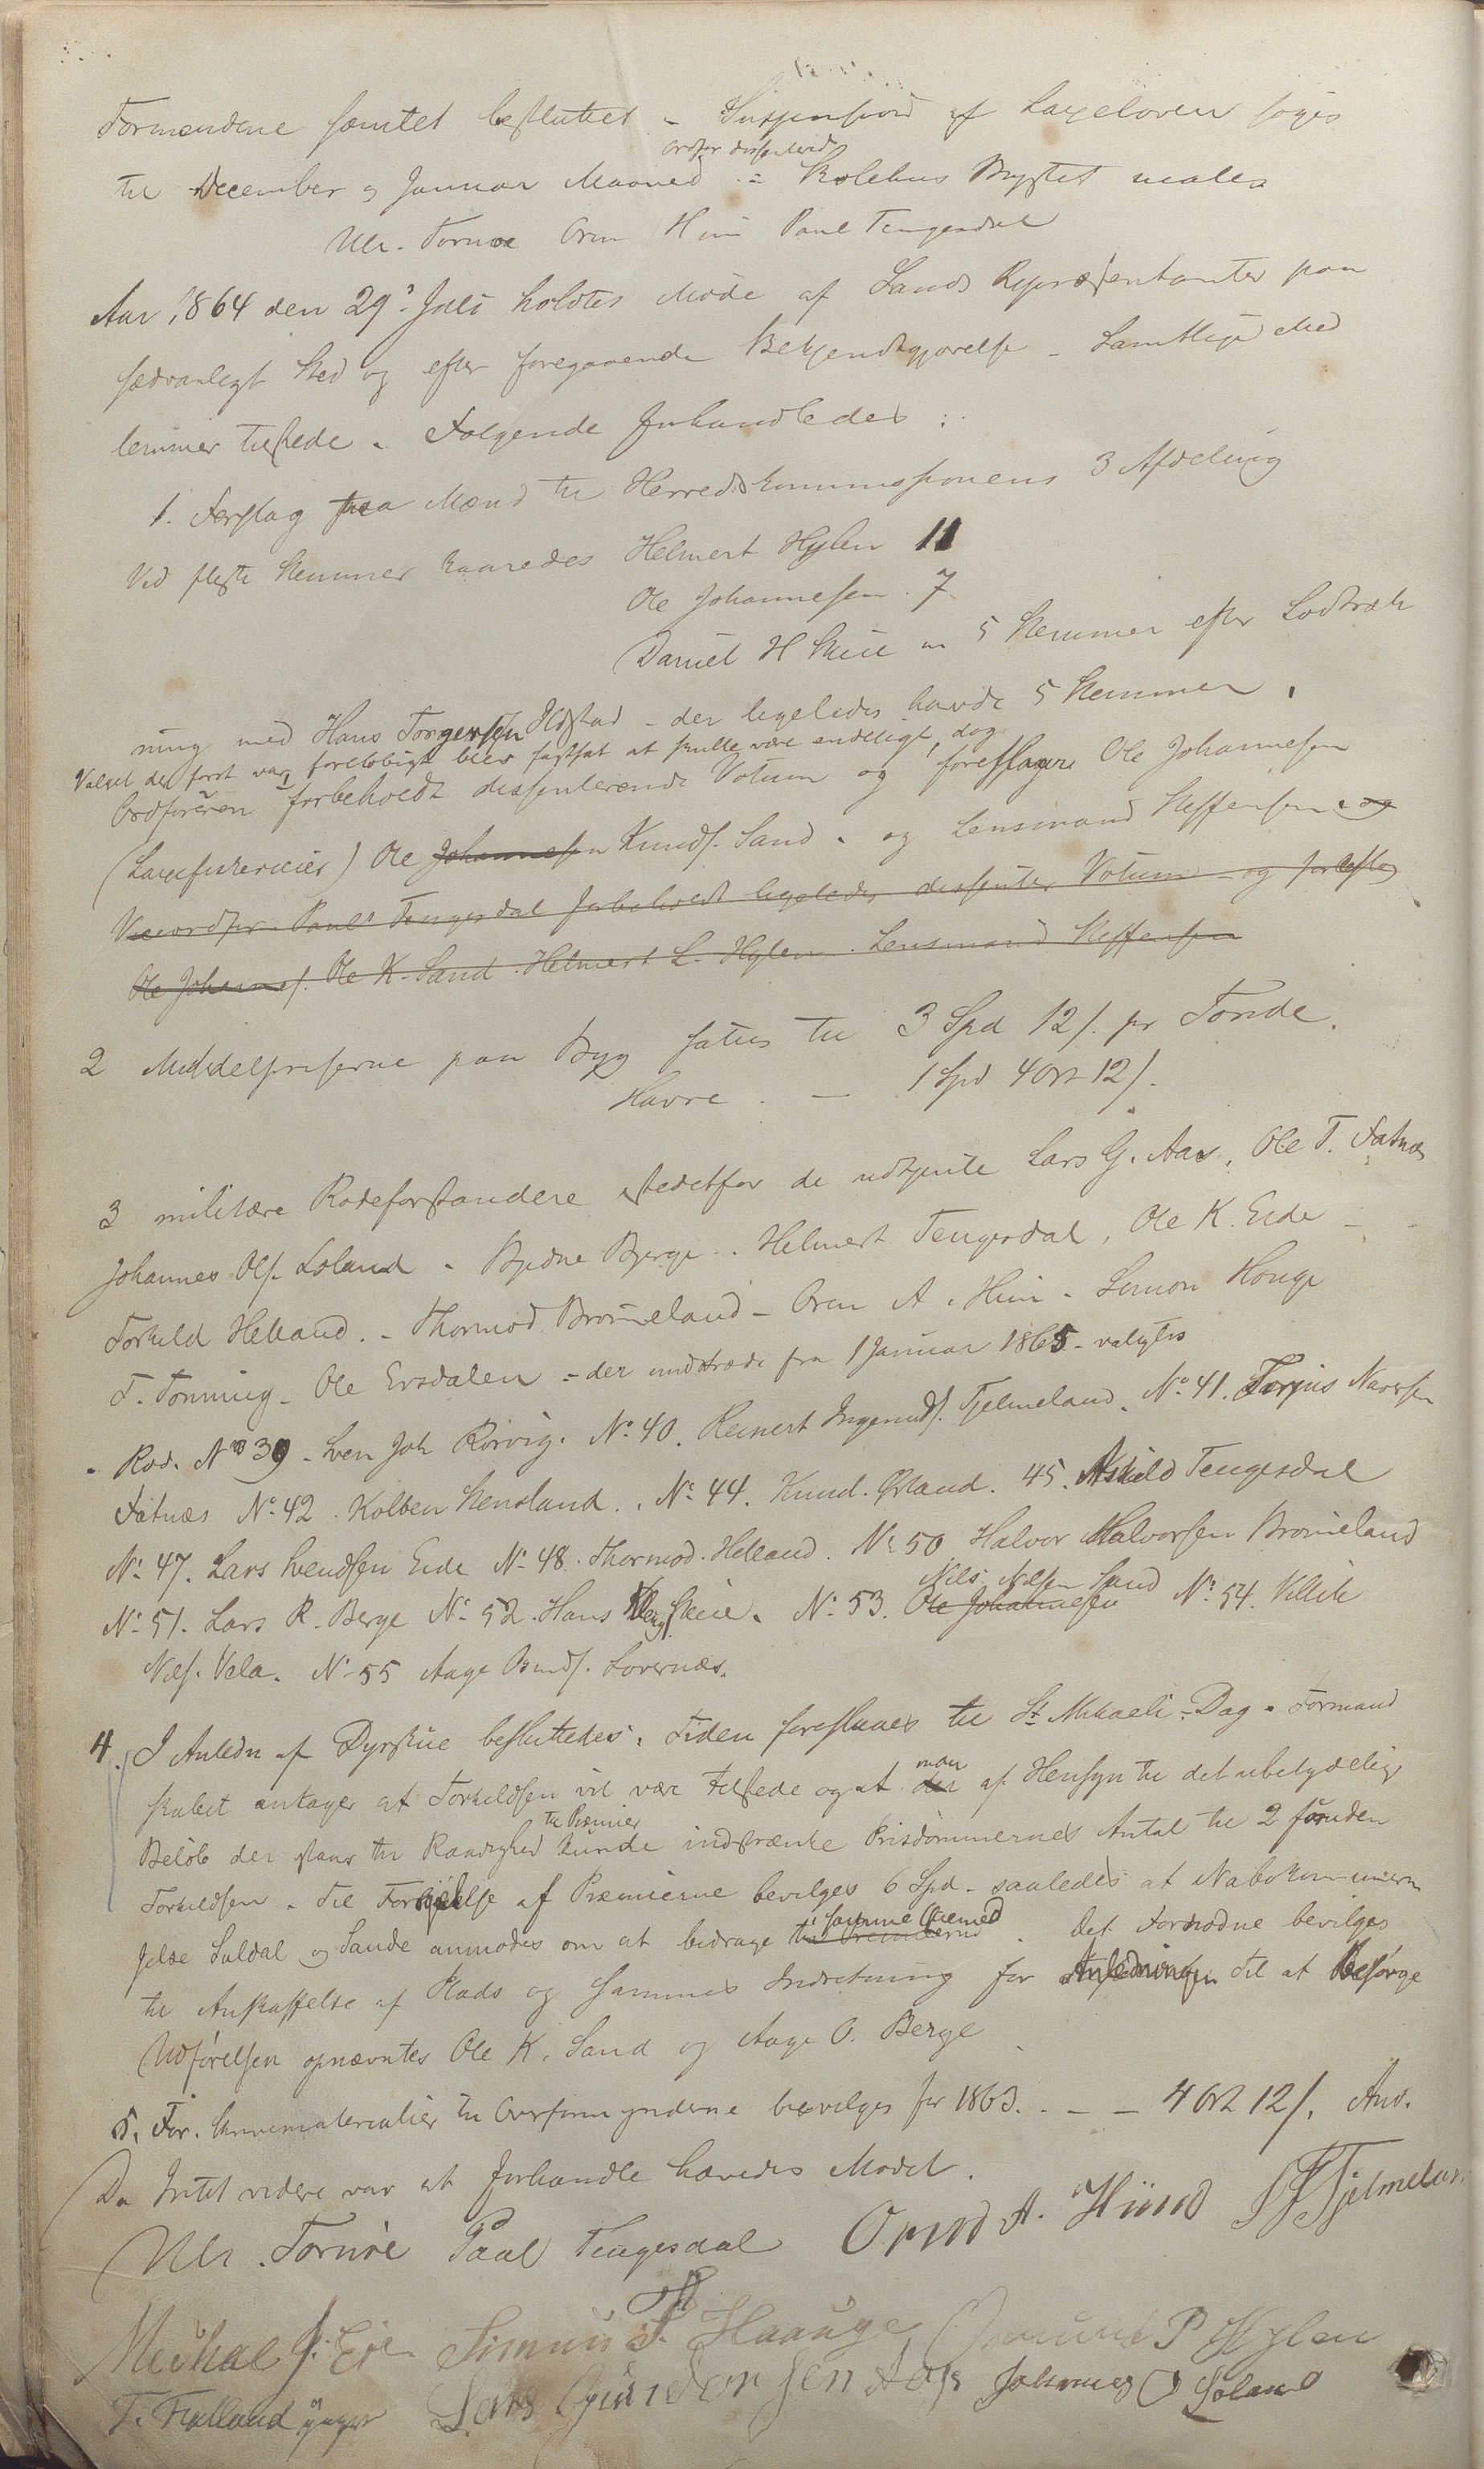 Formændene samtet besluttet - Suspension af Laxeloven søges
ordfør dissenterede
til December og Januar Maaned - Skolehus Bygtet males
Ulr. Tornøe Orm Hiim Paul Tengesdal
Aar 1864 den 29de Juli holdtes Møde af Sands Repræsentanter paa
sædvanligt Sted og efter foregaaende Bekjendtgjørelse - Samtlige Med
lemmer tilstede. Følgende forhandledes:
1. Forslag paa Mænd til Herredskommissionens 3 Afdeling
Ved fleste Stemmer kaaredes Helmert Hylen 11
Ole Johannesen 7
Daniel H Skeie m 5 Stemmer efter Lodtræk
ning med Hans Torgersen Ilstad - der ligeledes havde 5 Stemmer.
Valget der først var foreløbigt blev fastsat at skulle være endeligt, dog
Ordføreren forbeholdt dissenterende Votum og foreslager Ole Johannesen
(Laxefiskereier) Ole Johannesen Knuds. Sand. og Lensmand Steffensen og
Viceordfør. Paul Tengesdal forbeholdt ligeledes dissenter Votum og foreslog
Ole Johannes. Ole K. Sand. Helmert L. Hylen. Lensmand Steffensen
2 Middelpriserne paa Byg sattes til 3 Spd 12 s. pr Tønde.
Havre - 1 Spd 4 Ort 12 s.
3 militære Rodeforstandere istedetfor de udtjente Lars G. Aas, Ole T. Fatnæs
Johannes Ols. Løland. Bjedne Berge. Helmert Tengesdal, Ole K. Eide -
Torkild Helland. - Thormod Bromeland - Orm A. Hiim. Simon Houge
T. Tonning - Ole Ersdalen - der indtræde fra 1 Januar 1865 - valgtes
Rod. No 39 - Sven Joh Rørvig. No 40. Reinert Ingemds. Tjelmeland. No 41. Terjus Navesen
Fatnæs No 42. Kolben Stensland. No 44. Knud. Øland. 45. Askild Tengesdal
No 47. Lars Svendsen Eide No 48. Thormod. Helland. No 50 Halvor Halvorsen Bromeland
Nils Nilsen Sand
No 51. Lars R. Berge No 52. Hans Skeie. No 53. Ole Johannesen No 54. Villik
Nils. Vela. No 55 Aage Omds. Lovernæs.
4. I Anledn af Dyrskue besluttedes. Tiden foreslaaes til St Mikaeli-Dag. Formand
man
skabet antager at Torkildsen vil være tilstede og at der af Hensyn til det ubetydelige
til Præmier
Beløb der staar til Raadighed kunde indskrænke Prisdommernes Antal til 2 foruden
Torkildsen. Til Forøielse af Præmierne bevilges 6 Spd - saaledes at Nabokommunerne
samme Øiemed
Jelse Suldal og Sande anmodes om at bidrage til Præmierne. Det Fornødne bevilges
til Anskaffelse af Plads og sammes Indretning for Anledningen til at Besørge
Udførelsen opnævntes Ole K. Sand og Aage O. Berge
5. For. Skrivematerialier til Overformynderne bevilges for 1863. - - 4 Ort 12 s. Anv.
Da Intet videre var at forhandle hævedes Mødet.
Ulr. Tornøe Paal Tengesdal Ormd A. Hiimd Tjelmeland
Mickal J. Eie Simon S. Haauge Osmund P Hylen
T. Fralland yngre Lars Gundersen Aas Johannes O Løland